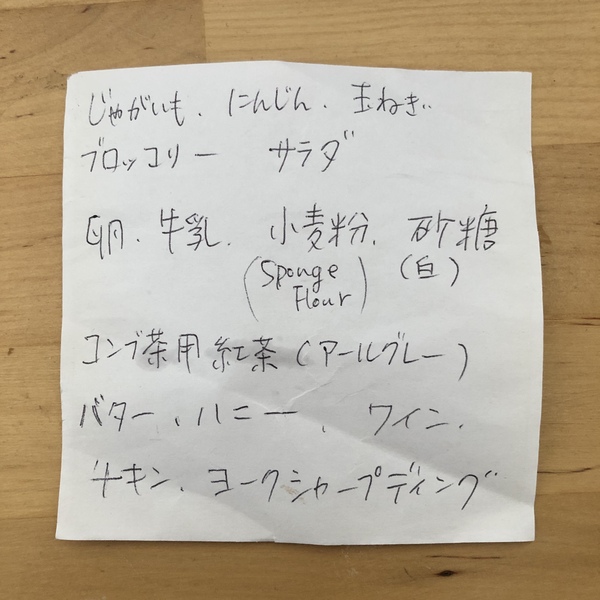 じゃがいも、にんじん、玉ねぎ、
ブロッコリー サラダ
卵、牛乳、小麦粉、砂糖
(Sponge Flour) (白)
コンブ茶用紅茶(アールグレー)
バター、ハニー、ワイン、
チキン、ヨークシャープディング